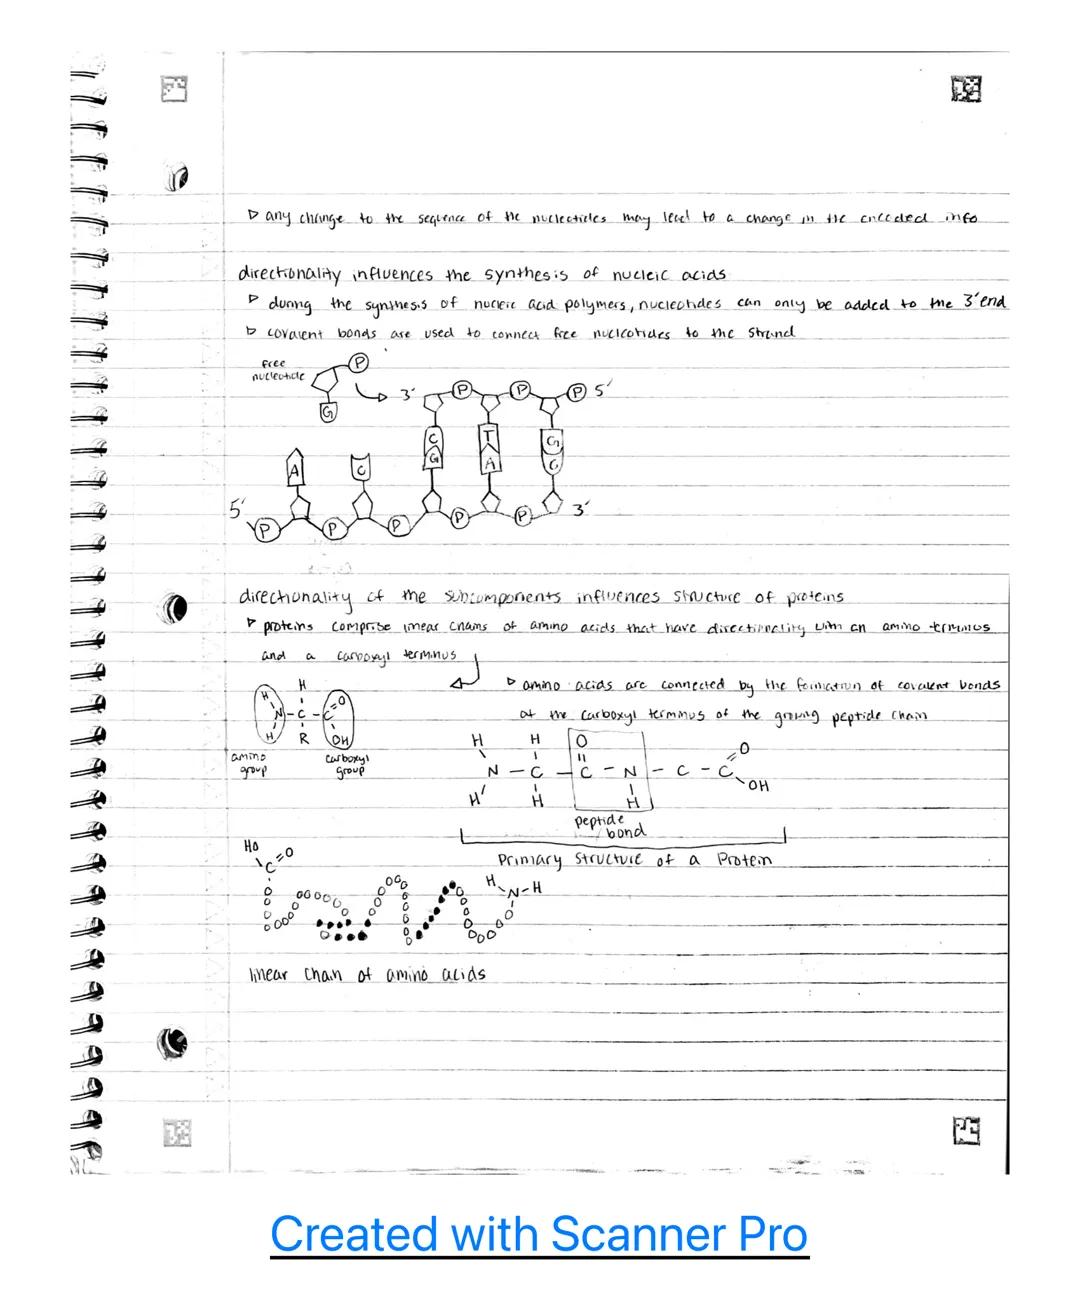 ▷ any change to the sequence of the nucleotides may lead to a change in the encoded info
directionality influences the synthesis of nucleic acids
▷ during the synthesis of nucleic acid polymers, nucleotides can only be added to the 3' end
▷ covalent bonds are used to connect free nucleotides to the strand
free
nucleotide
P
G
3' P P P 5'
C T G
G A C
A C
5' P P P P P 3'
directionality of the subcomponents influences structure of proteins
▷ proteins comprise linear chains of amino acids that have directionality with an amino terminus
and a carboxyl terminus
▷ amino acids are connected by the formation of covalent bonds
at the carboxyl terminus of the growing peptide chain
H H O
N - C - C
H R OH
amino
group
carboxyl
group
H H O O
N - C - C - N - C - C
H H H OH
peptide
bond
Primary Structure of a Protein
HO
C=O
H N-H
linear chain of amino acids
Created with Scanner Pro